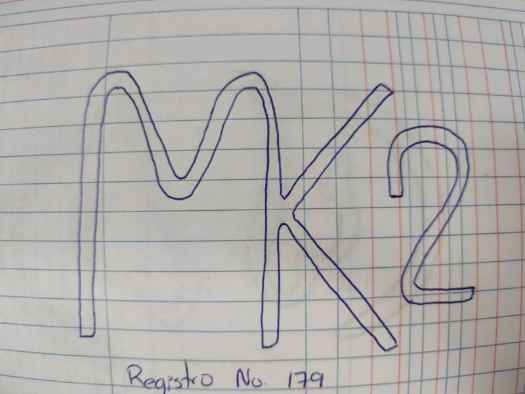 MK2
Registro No. 179